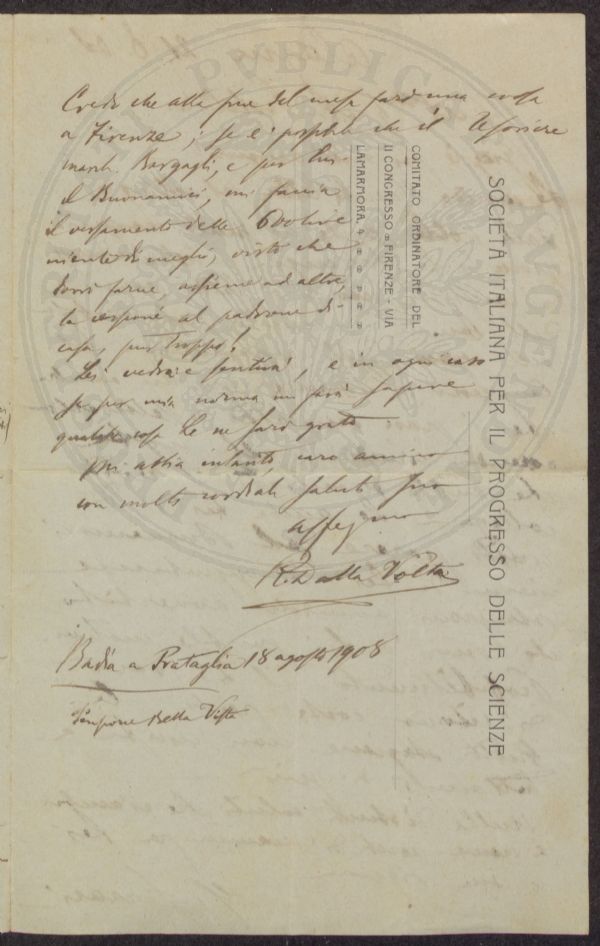 Credo che alla fine del mese farò una corsa
a Firenze; se è possibile che il Tesoriere
march. Bargagli, e per lui
il Buonamici, mi faccia
il versamento delle 600 lire
niente di meglio, visto che
dovrò farne, assieme ad altre,
la al padrone di
casa, pur troppo!
Lei vedrà e sentirà, e in ogni caso
se per mia norma mi farà sapere
qualche cosa Le ne sarò grato
Mi abbia intanto, caro amico
con molti cordiali saluti suo
R. Dalla Volta
Badia a Prataglia 18 agosto 1908
Pensione Bella Vista
COMITATO ORDINATORE DEL
II CONGRESSO - FIRENZE - VIA
LAMARMORA
SOCIETÀ ITALIANA PER IL PROGRESSO DELLE SCIENZE